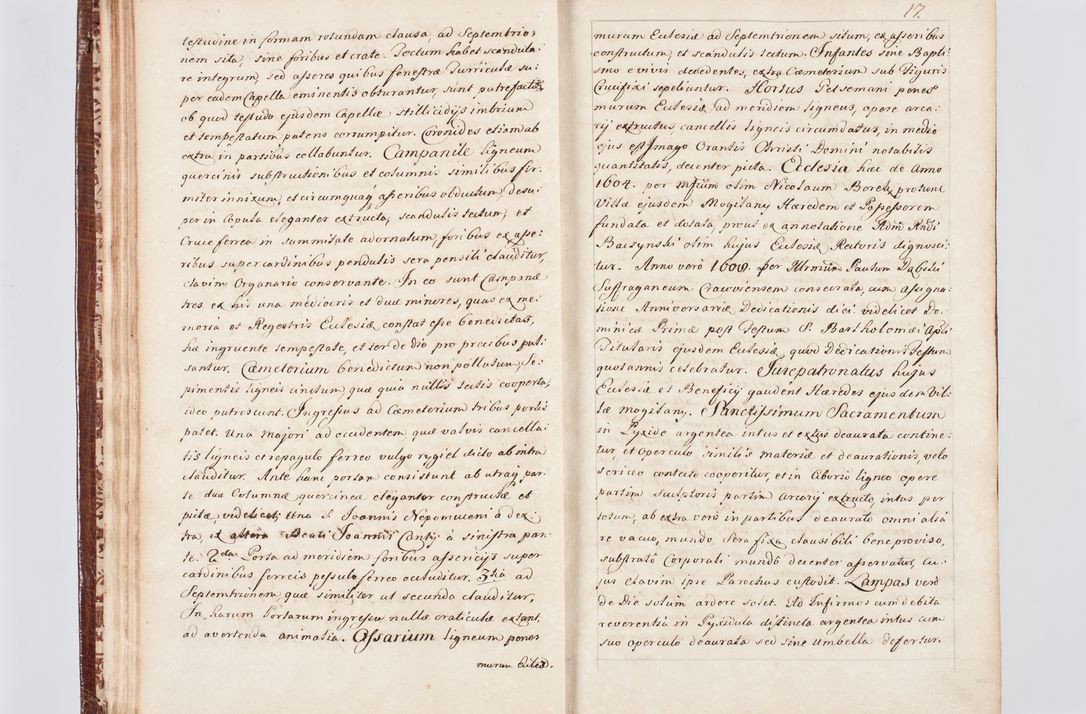 testudine in formam rotundam clausa, ad Septemtrio:
nem sita, sine foribus et crate. Tectum habet scandula:
re integrum, sed asseres quibus fenestræ Turriculæ su:
per eadem Capella eminentis obturantur, sunt putrefactæ,
ob quod testudo ejusdem Capellæ stillicidijs imbrium
et tempestatum patens corrumpitur. Coronides etiam ab
extra in partibus collabuntur. Campanile ligneum
quercinis substructionibus et columnis similibus fir:
miter innixum, et circumquaq; asseribus obductum, desu:
per in Copula eleganter extructa, scandulis tectum, et
Cruce ferrea in summitate adornatum, foribus ex asse:
ribus super cardinibus pendulis sera pensili clauditur,
clavim Organario conservante. In eo sunt Campanæ
tres ex his una mediocris et duæ minores, quas ex me:
moria et Regestris Ecclesiæ constat esse benedictas,
hæ ingruente tempestate, et ter de die pro precibus pul:
santur. Cæmeterium benedictum non pollutum, Se:
pimentis ligneis cinctum, quæ quia nullis tectis cooperta,
ideo putrescunt. Ingressus ad Cæmeterium tribus portis
patet. Una Majori ad occidentem quæ valvis cancella:
tis ligneis et repagulo ferreo vulgo rygiel dicto ab intra
clauditur. Ante hanc portam consistunt ab utraq; par:
te duæ Columnæ quercineæ eleganter constructæ et
pictæ, videlicet, Una S. Joannis Nepomuceni à dex:
tra, et altera Beati Joannis Cantij à sinistra par:
te. 2da Porta ad meridiem foribus assericijs super
cardinibus ferreis pessulo ferreo occluditur. 3tia ad
Septemtrionem, quæ similiter ut secunda clauditur,
In harum Portarum ingressu nullæ craticulæ extant,
ad avertenda animalia. Ossarium ligneum penes
murum Eccles.
17.
murum Ecclesiæ ad Septemtrionem situm, ex asseribus
constructum, et scandulis tectum. Infantes sine Bapti:
smo e vivis decedentes, extra Cæmeterium sub Figuris
Crucifixi sepeliuntur. Hortus Getsemani penes
murum Ecclesiæ ad meridiem ligneus, opere arca:
rij extructus cancellis ligneis circumdatus, in medio
ejus est Imago Orantis Christi Domini notabilis
quantitatis, decenter picta. Ecclesia hæc de Anno
1604. per olim Nicolaum protunc
Villæ ejusdem Mogilany Hæredem et Possessorem
fundata et dotata, prout ex annotatione Adm Rndi
Baczynski olim hujus Ecclesiæ Rectoris dignosci:
tur. Anno verò 1608. per Illrmum Paulum
Suffraganeum Cracoviensem consecrata cum assigna:
tione Anniversariæ Dedicationis diei videlicet Do:
minicæ Primæ post Festum S. Bartholomæi Apli
Titularis ejusdem Ecclesiæ, quod Dedicationis Festum
quotannis celebratur. Jurepatronatus hujus
Ecclesiæ et Beneficij gaudent Hæredes ejusdem Vil:
læ Mogilany. Sanctissimum Sacramentum
in Pyxide argentea intus et extra deaurata contine:
tur, et operculo similis materiæ et deaurationis, velo
sericeo contecto cooperitur, et in Ciborio ligneo opere
partim Sculptoris partim arcarij extructo, intus per
totum, ab extra verò in partibus deaurato omni aliâ
re vacuo, mundo, Sera fixa clausibili bene proviso,
substratô Corporali mundô decenter asservatur, cu:
jus clavim ipse Parochus custodit. Lampas verò
de Die solum ardere solet. Ad Infirmos cum debita
reverentia in Pyxidula distincta argentea intus cum
suo operculo deaurata sed sine umbella defertur.